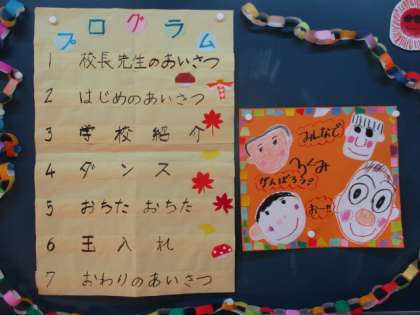 プログラム
1 校長先生のあいさつ
2 はじめのあいさつ
3 学校紹介
4 ダンス
5 おちた おちた
6 玉入れ
7 おわりのあいさつ
みんなで
がんばろう
お〜!!